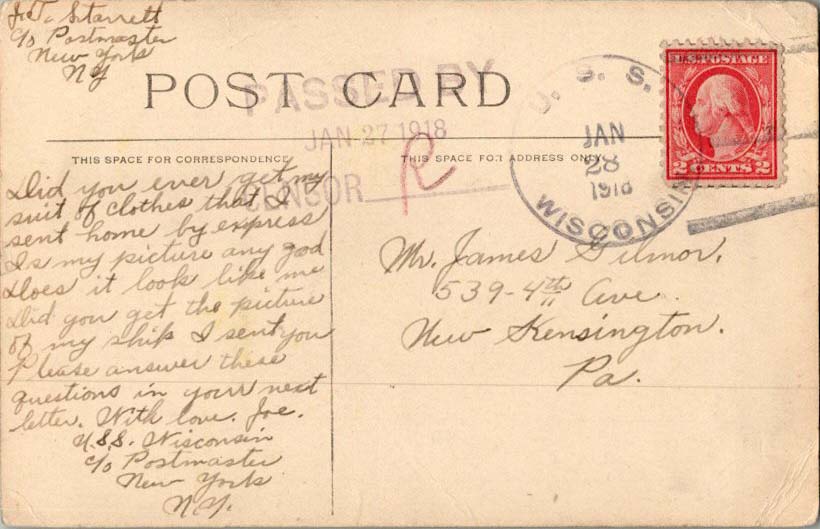 J. T. Starrett
c/o Postmaster
New York
NY
POST CARD
PASSED BY
JAN 27 1918
CENSOR R
U. S. S.
JAN
28
1918
WISCONSIN
U.S. POSTAGE
2 CENTS 2
THIS SPACE FOR CORRESPONDENCE
THIS SPACE FOR ADDRESS ONLY
Did you ever get my
suit of clothes that I
sent home by express
Is my picture any good
Does it look like me
Did you get the picture
of my ship I sent you
Please answer these
questions in your next
letter. With love. Joe.
U.S.S. Wisconsin
c/o Postmaster
New York
N.Y.
Mr. James Gilmor.
539-4th Ave.
New Kensington.
Pa.